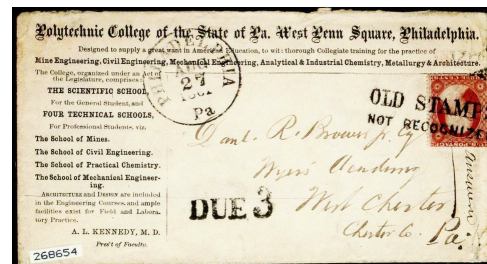 Polytechnic College of the State of Pa. West Penn Square, Philadelphia.
Designed to supply a great want in American Education, to wit: thorough Collegiate training for the practice of
Mine Engineering, Civil Engineering, Mechanical Engineering, Analytical & Industrial Chemistry, Metallurgy & Architecture.
The College, organized under an Act of
the Legislature, comprises
THE SCIENTIFIC SCHOOL,
For the General Student, and
FOUR TECHNICAL SCHOOLS,
For Professional Students, viz.
The School of Mines.
The School of Civil Engineering.
The School of Practical Chemistry.
The School of Mechanical Engineer-
ing.
ARCHITECTURE and DESIGN are included
in the Engineering Courses, and ample
facilities exist for Field and Labora-
tory Practice.
A. L. KENNEDY, M. D.
Pres't of Faculty.
PHILADELPHIA
AUG
27
1861
Pa
OLD STAMP
NOT RECOGNIZE
POSTAGE
Danl. R. Brown jr. Esq
Wyers Academy
West Chester
Chester Co.
Pa.
DUE 3
268654